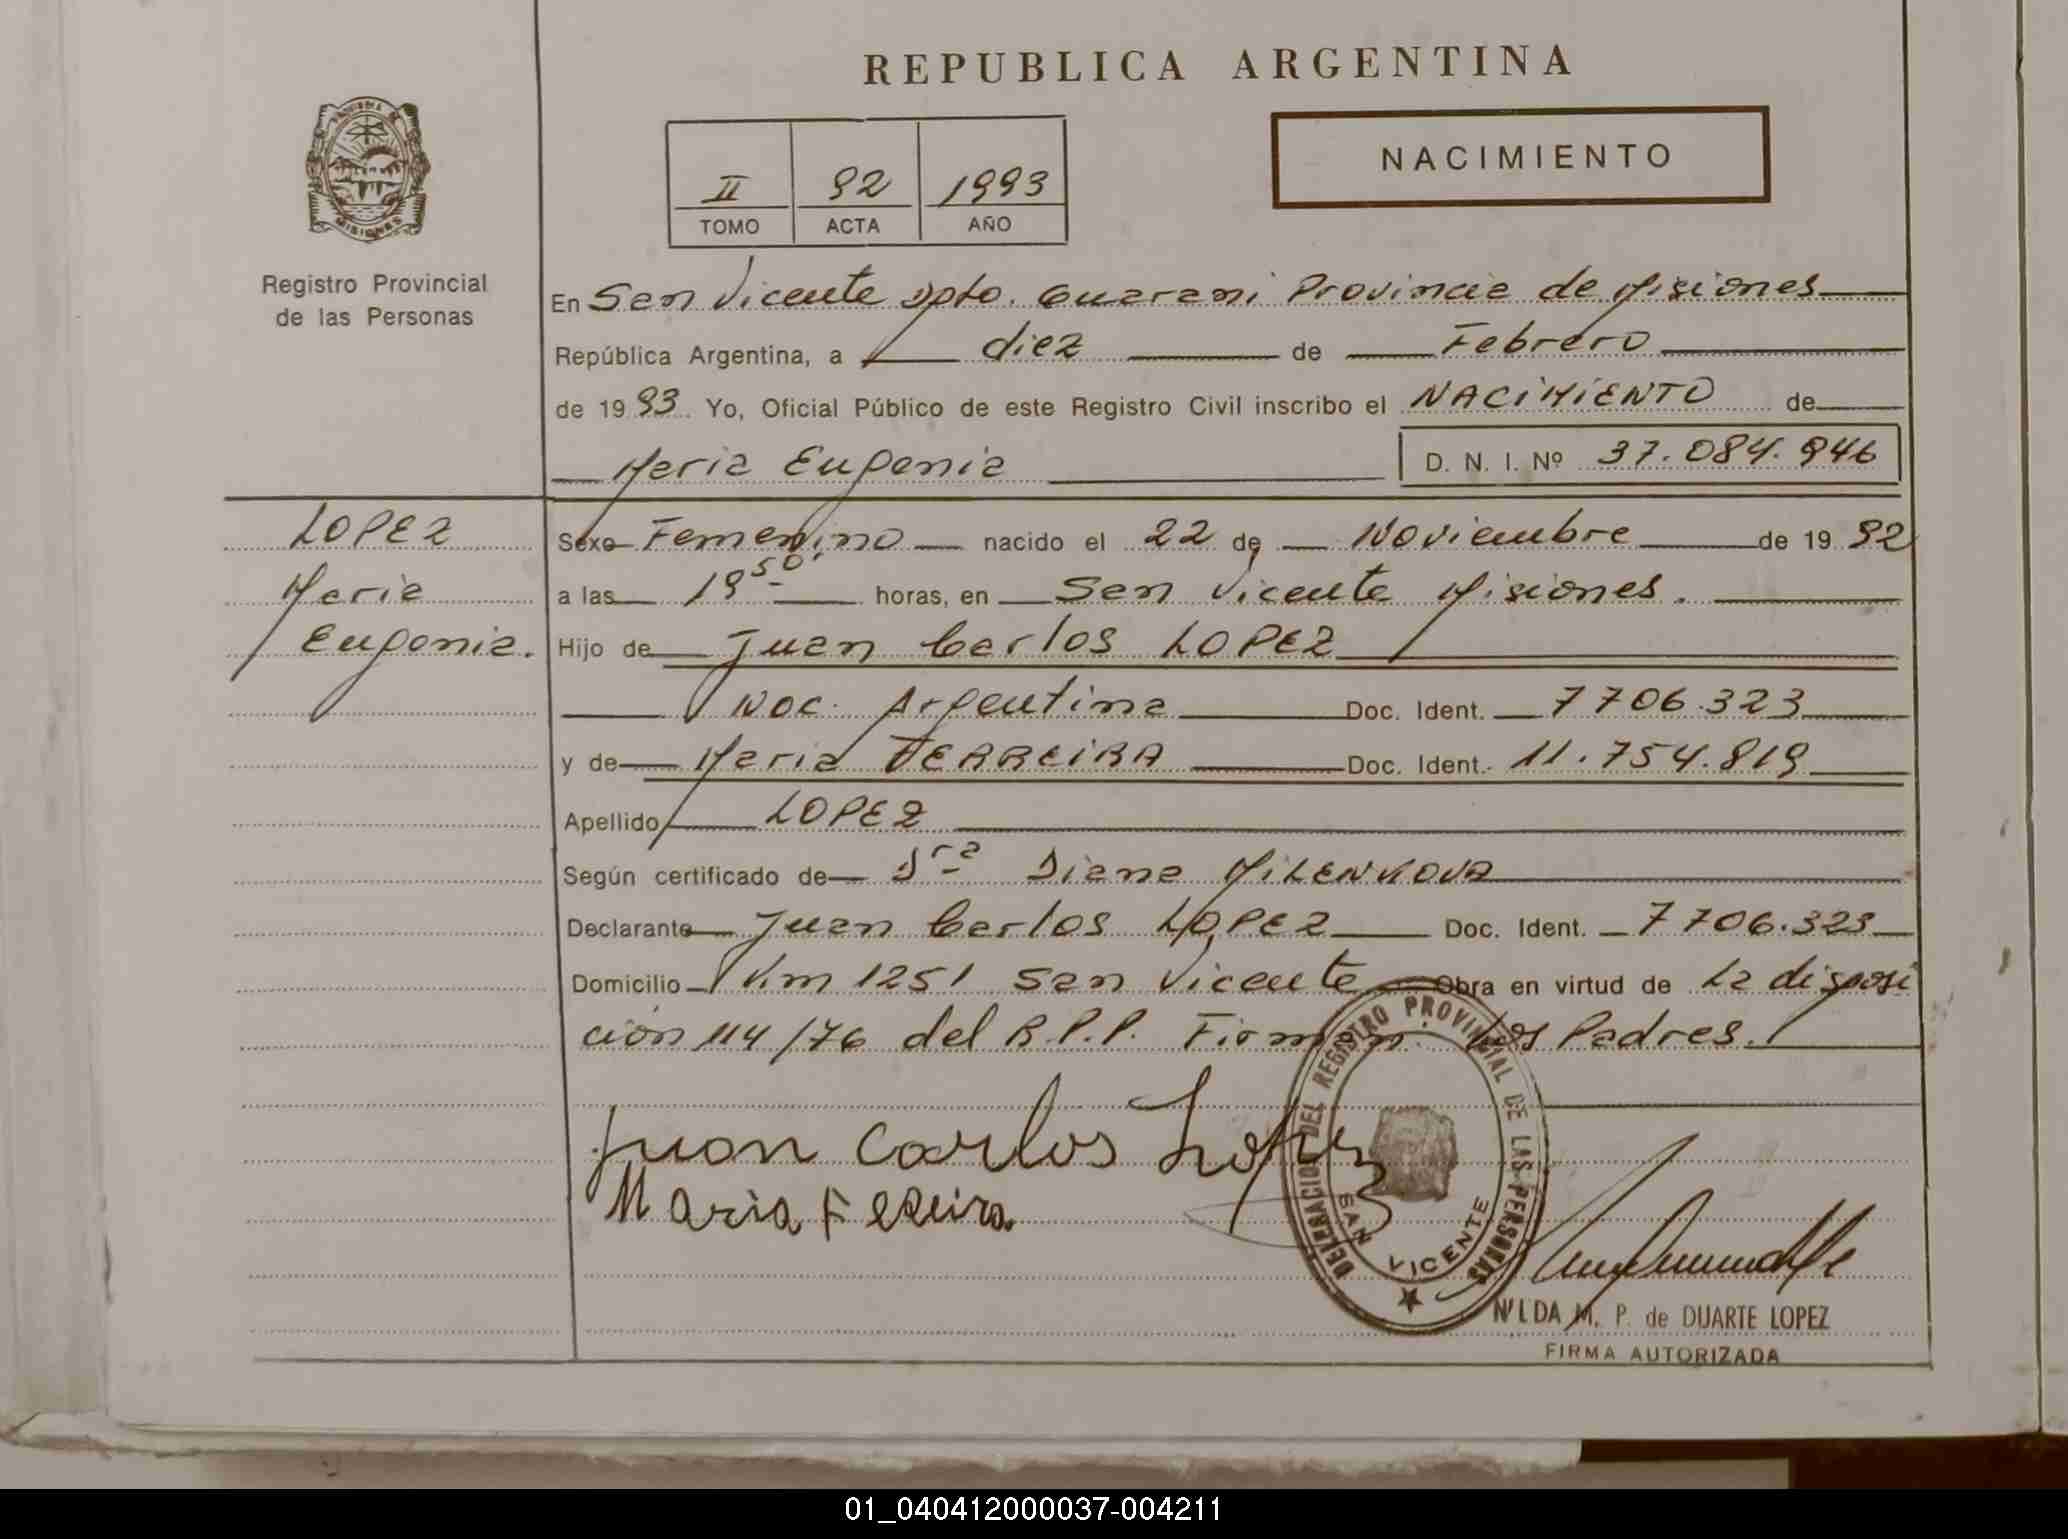 REPUBLICA ARGENTINA
NACIMIENTO
II 92 1993
TOMO ACTA AÑO
MISIONES
Registro Provincial
de las Personas
En San Vicente Dpto. Guarani Provincia de Misiones
República Argentina, a diez de Febrero
de 1993. Yo, Oficial Público de este Registro Civil inscribo el NACIMIENTO de
Maria Eugenia D. N. I. Nº 37.084.946
LOPEZ
Maria
Eugenia.
Sexo Femenino nacido el 22 de Noviembre de 1992
a las 19 50 horas, en San Vicente Misiones.
Hijo de Juan Carlos LOPEZ
Nac. Argentina Doc. Ident. 7706.323
y de Maria FERREIRA Doc. Ident. 11.754.819
Apellido LOPEZ
Según certificado de Dra Diana MILENKOVA
Declarante Juan Carlos LOPEZ Doc. Ident. 7706.323
Domicilio Km 1251 San Vicente Obra en virtud de La disposi
ción 114/76 del R.P.P. Firman: Los Padres.
Juan Carlos Lopez
Maria Fereira
DELEGACION DEL REGISTRO PROVINCIAL DE LAS PERSONAS
SAN VICENTE
NILDA M. P. de DUARTE LOPEZ
FIRMA AUTORIZADA
01_040412000037-004211